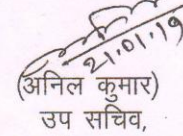 21.01.19
(अनिल कुमार)
उप सचिव,